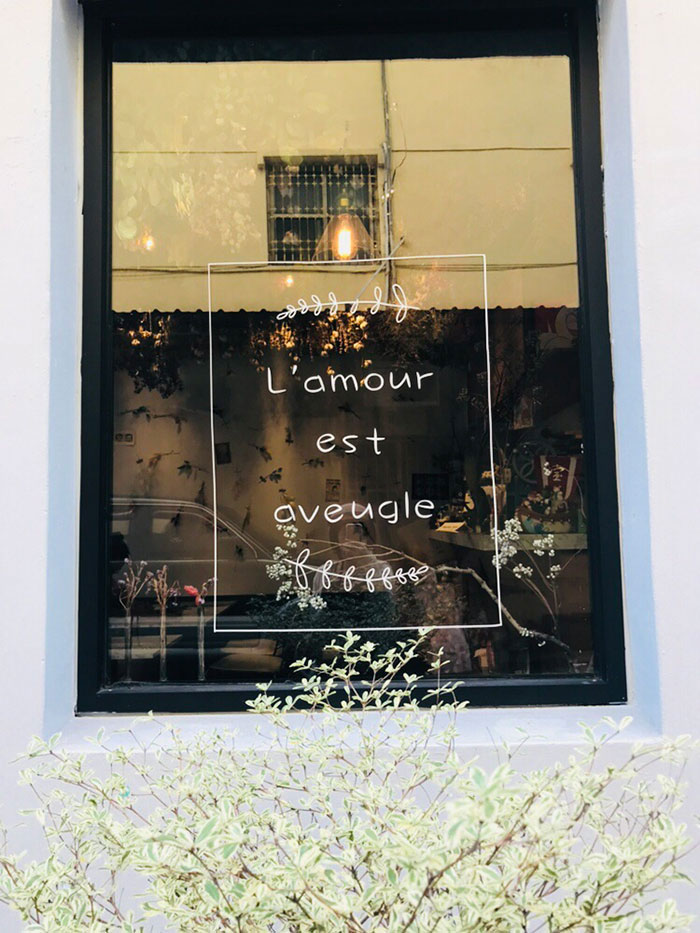 L'amour
est
aveugle